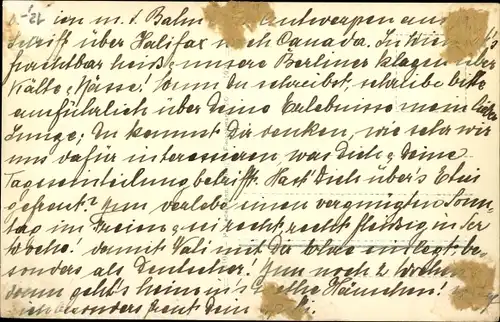 ien m. d. Bahn Antwerpen
Schiff über Halifax nach Canada. In Wien ist
furchtbar heiß, unsere Berliner klagen über
Kälte, Nässe! Wenn Du schreibst, schreibe bitte
ausführlich über Deine Erlebnisse mein lieber
Junge; Du kannst Dir denken, wie sehr wir
uns dafür interessieren, was Dich u. Deine
Tageseinteilung betrifft. Hast Dich über's Etui
gefreut? Nun verlebe einen vergnügten Sonn-
tag im Freien u. sei recht, recht fleißig in der
Woche! damit Vati mit Dir Ehre einlegt, be-
sonders als Deutscher! Nun noch 2 Wochen
dann geht's heim ins Häuschen!
besonders freut Dein